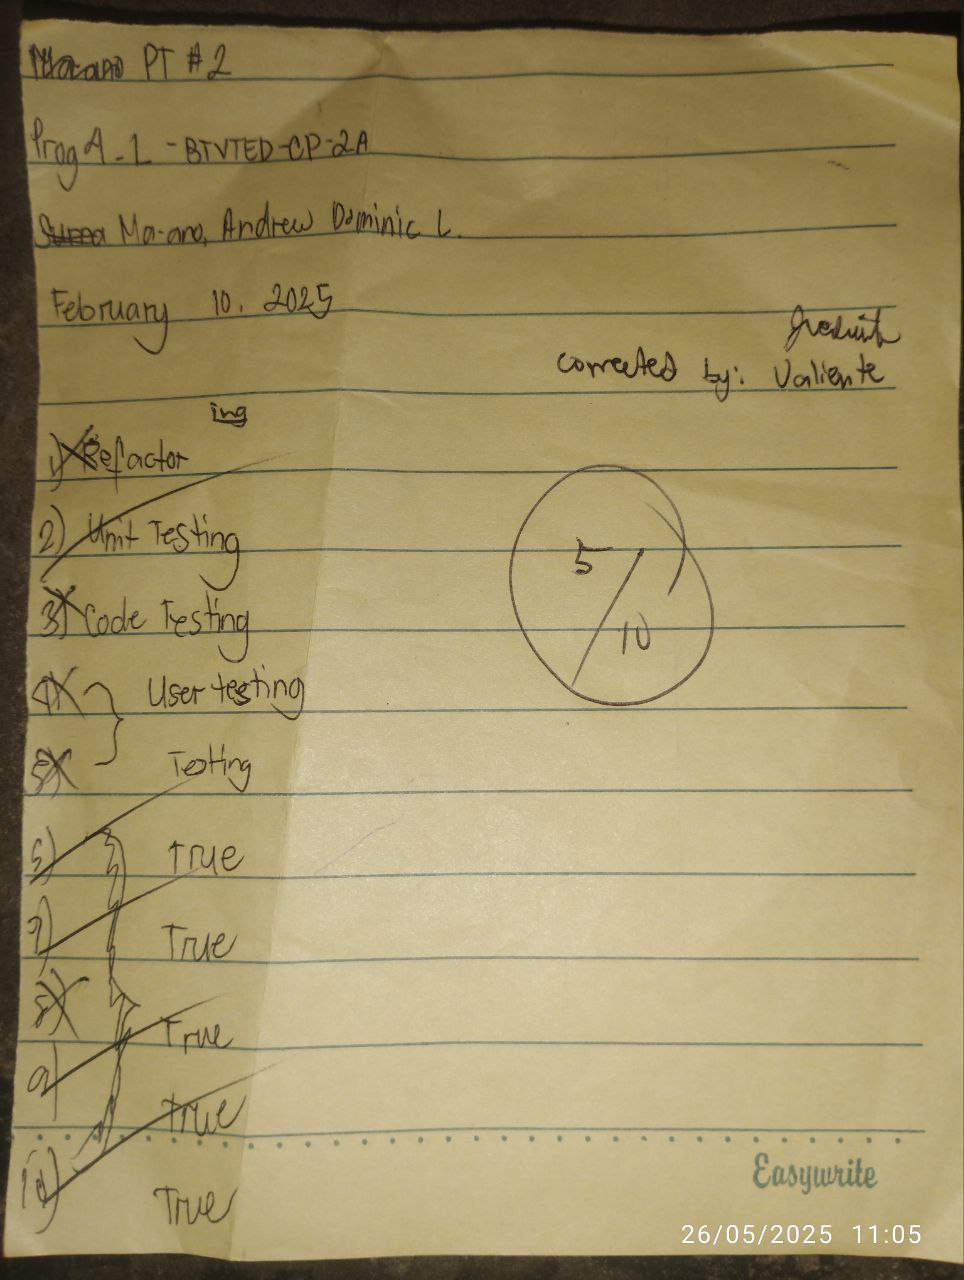 Ma-ano PT #2
Prog 4-L -BTVTED-CP-2A
Ma-ano, Andrew Dominic L.
February 10. 2025
corrected by: Valiente
ing
1) Refactor
2) Unit Testing
3) Code Testing
4) User testing
5) Testing
6) True
7) True
8) True
9) True
10) True
5/10
Easywrite
26/05/2025 11:05